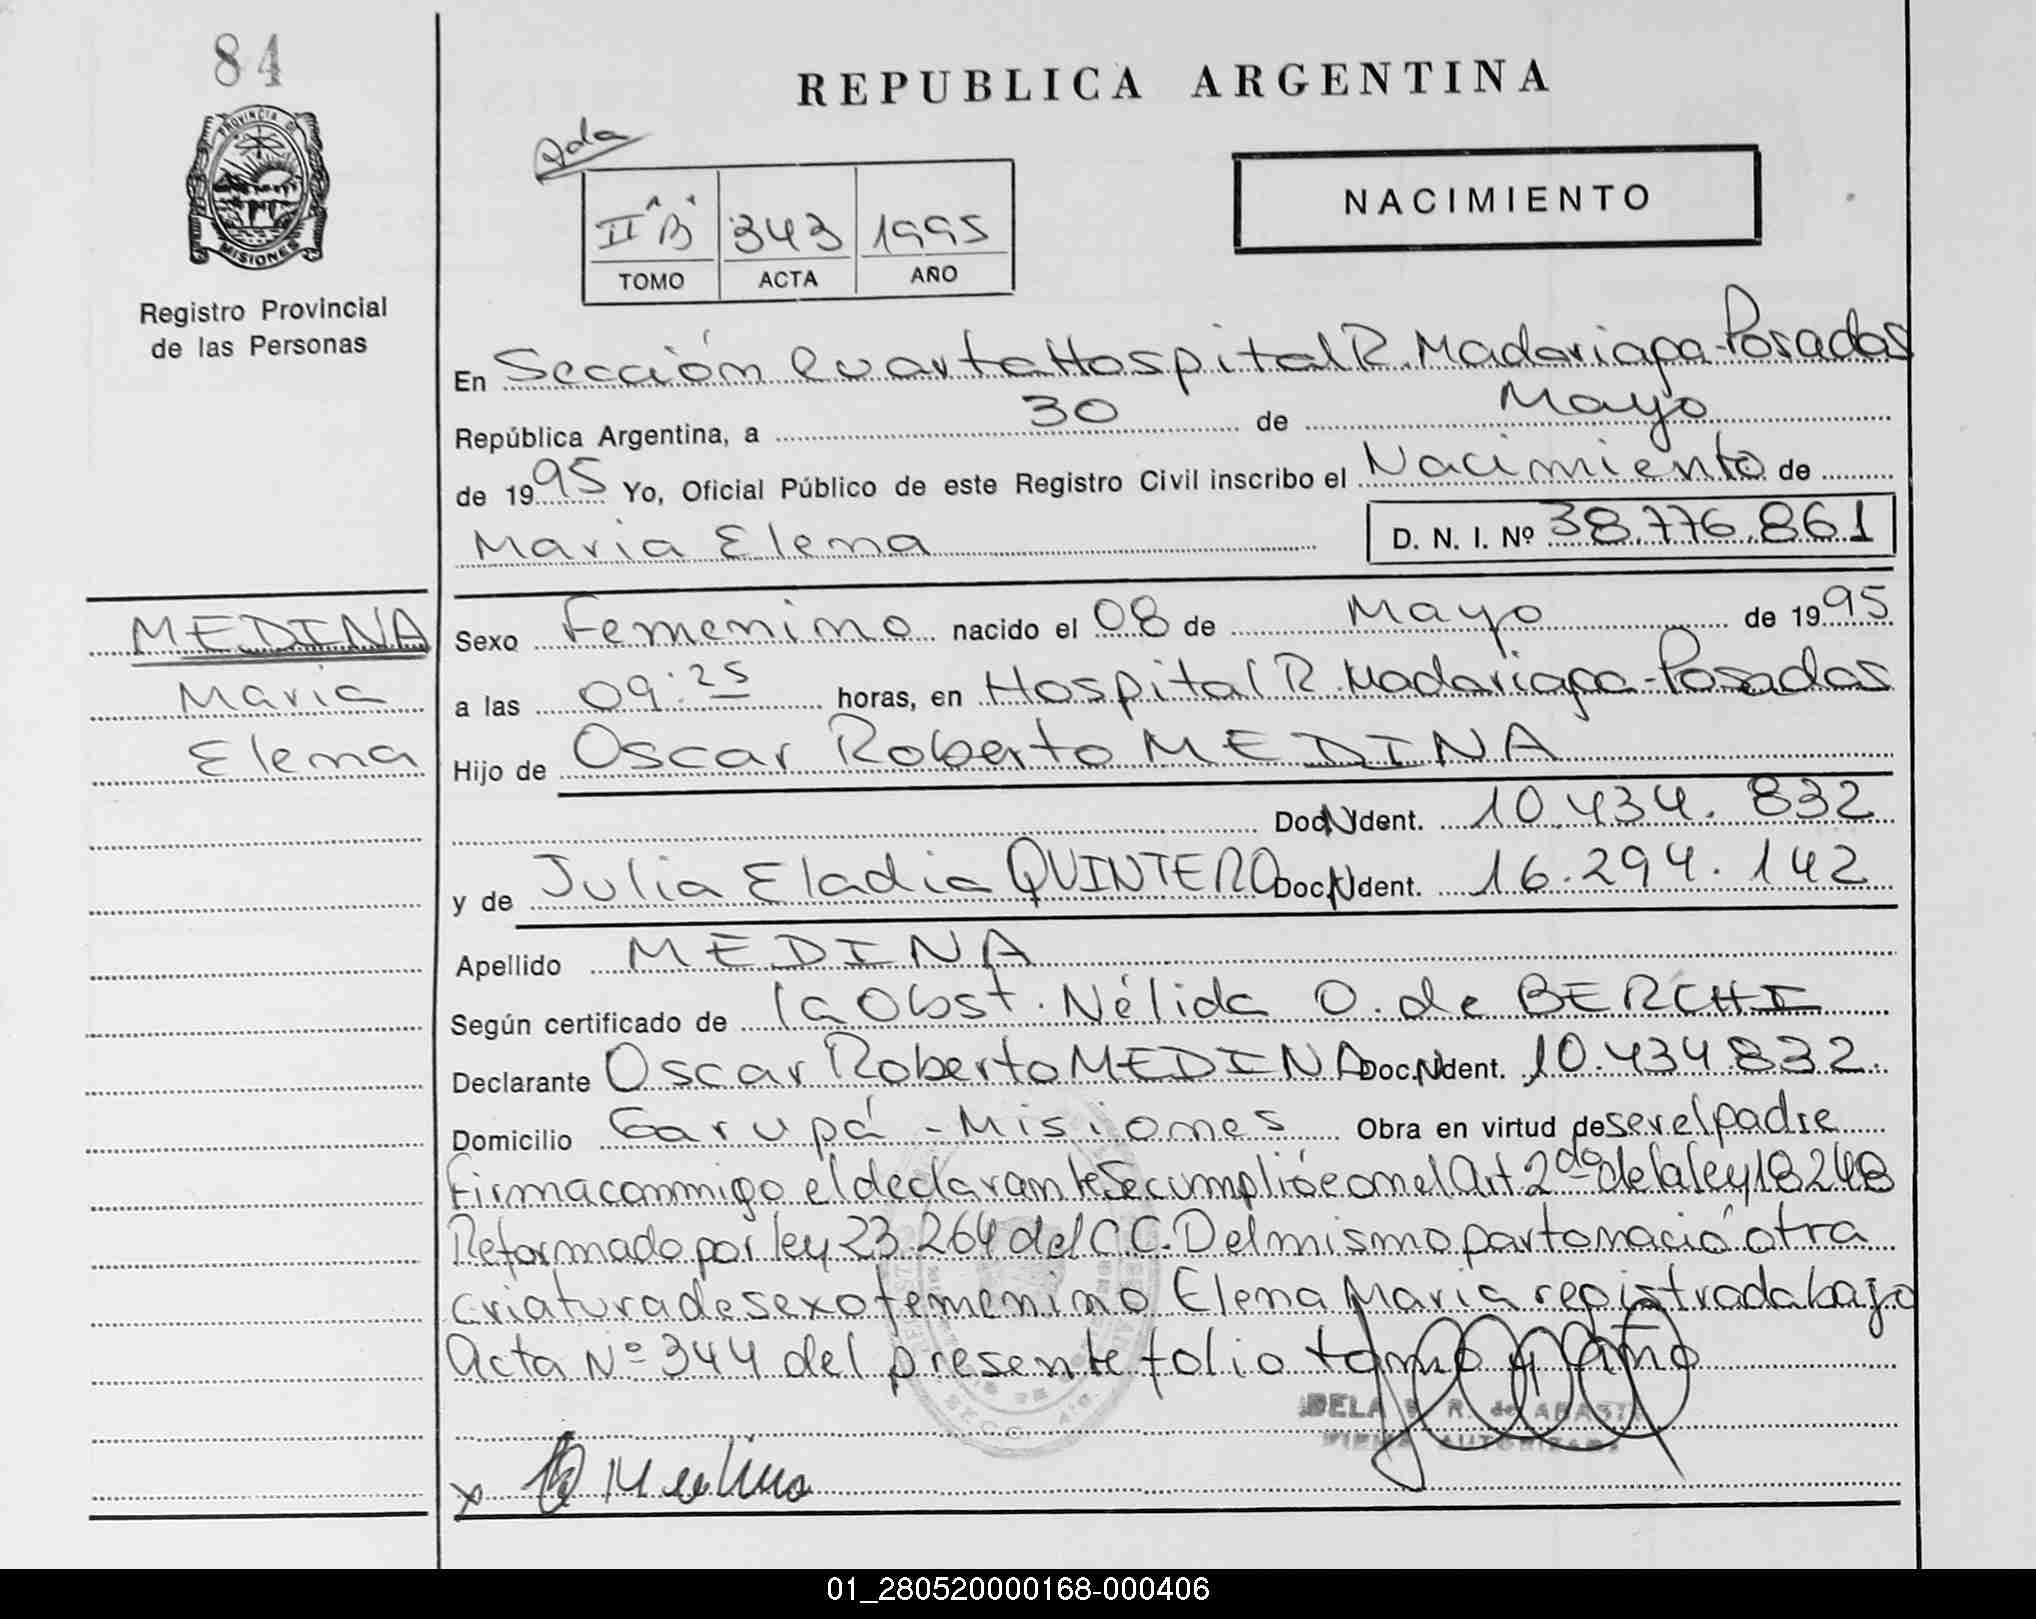 84
REPUBLICA ARGENTINA
PROVINCIA DE
MISIONES
Registro Provincial
de las Personas
II "B" 343 1995
TOMO ACTA AÑO
NACIMIENTO
En Sección Cuarta Hospital R. Madariaga-Posadas
República Argentina, a 30 de Mayo
de 1995 Yo, Oficial Público de este Registro Civil inscribo el Nacimiento de
Maria Elena D. N. I. Nº 38.776.861
MEDINA
Maria
Elena
Sexo Femenino nacido el 08 de Mayo de 1995
a las 09:25 horas, en Hospital R. Madariaga-Posadas
Hijo de Oscar Roberto MEDINA
Doc. Ident. 10.434.832
y de Julia Eladia QUINTERO Doc. Ident. 16.294.142
Apellido MEDINA
Según certificado de la Obst. Nélida O. de BERCHI
Declarante Oscar Roberto MEDINA Doc. Ident. 10.434.832.
Domicilio Garupá - Misiones Obra en virtud de ser el padre
Firma conmigo el declarante Se cumplió con el Art 2do de la ley 18248
Reformado por ley 23.264 del C.C. Del mismo parto nació otra
criatura de sexo femenino Elena Maria registrada bajo
Acta Nº 344 del presente folio tomo y año
x Medina
01_280520000168-000406